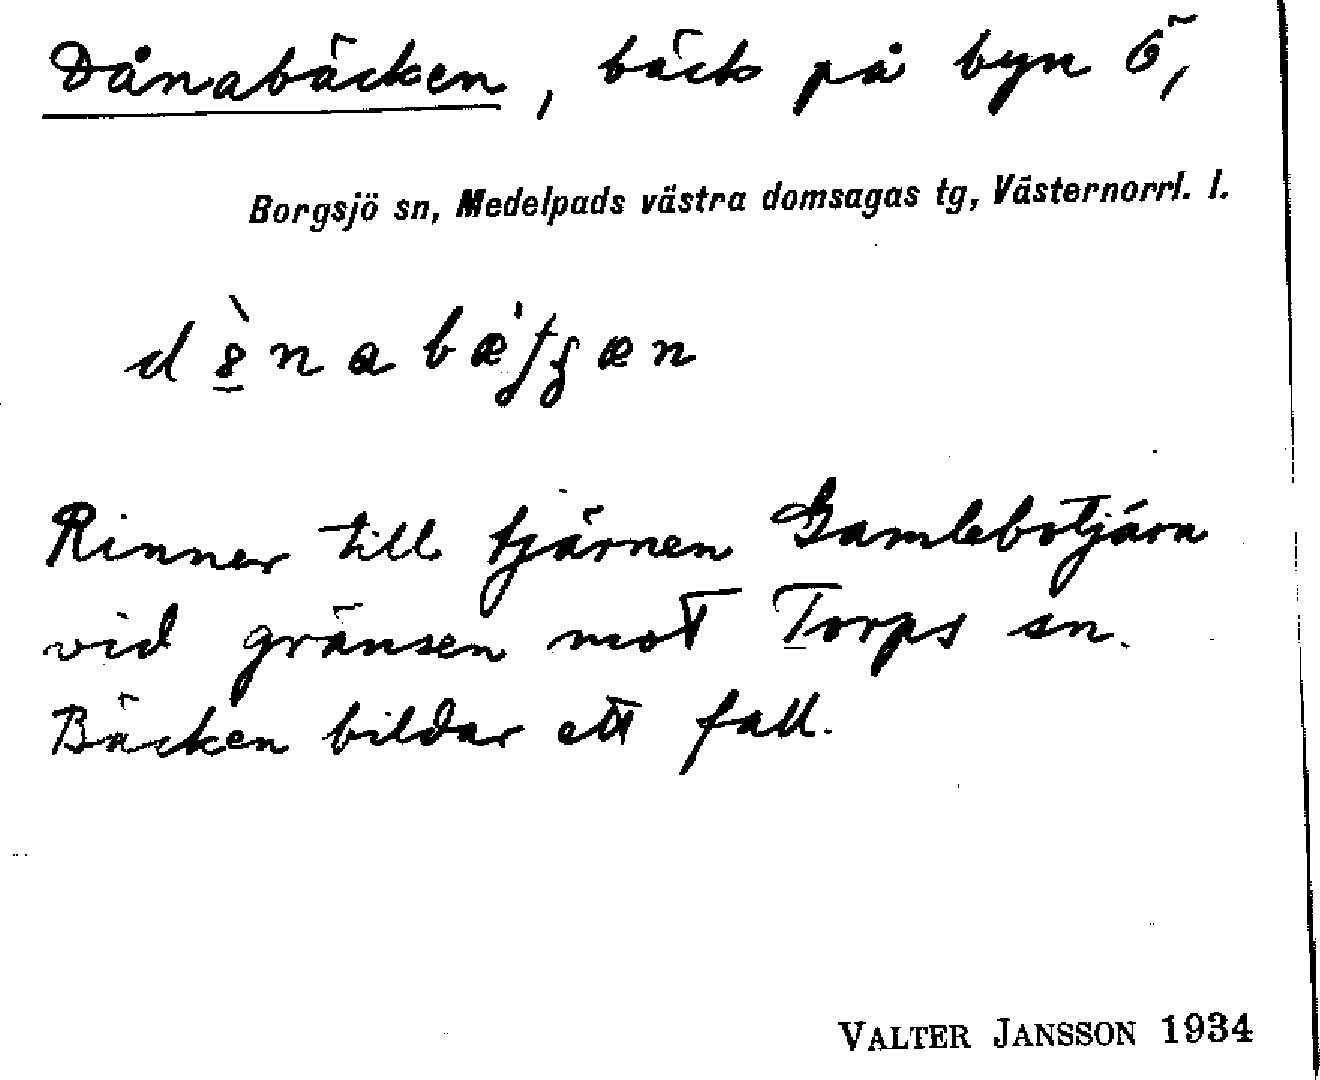 Dånabäcken, bäck på byn Ö,
Borgsjö sn, Medelpads västra domsagas tg, Västernorrl. l.
Rinner till tjärnen Gamlebotjärn
vid gränsen mot Torps sn.
Bäcken bildar ett fall.
VALTER JANSSON 1934